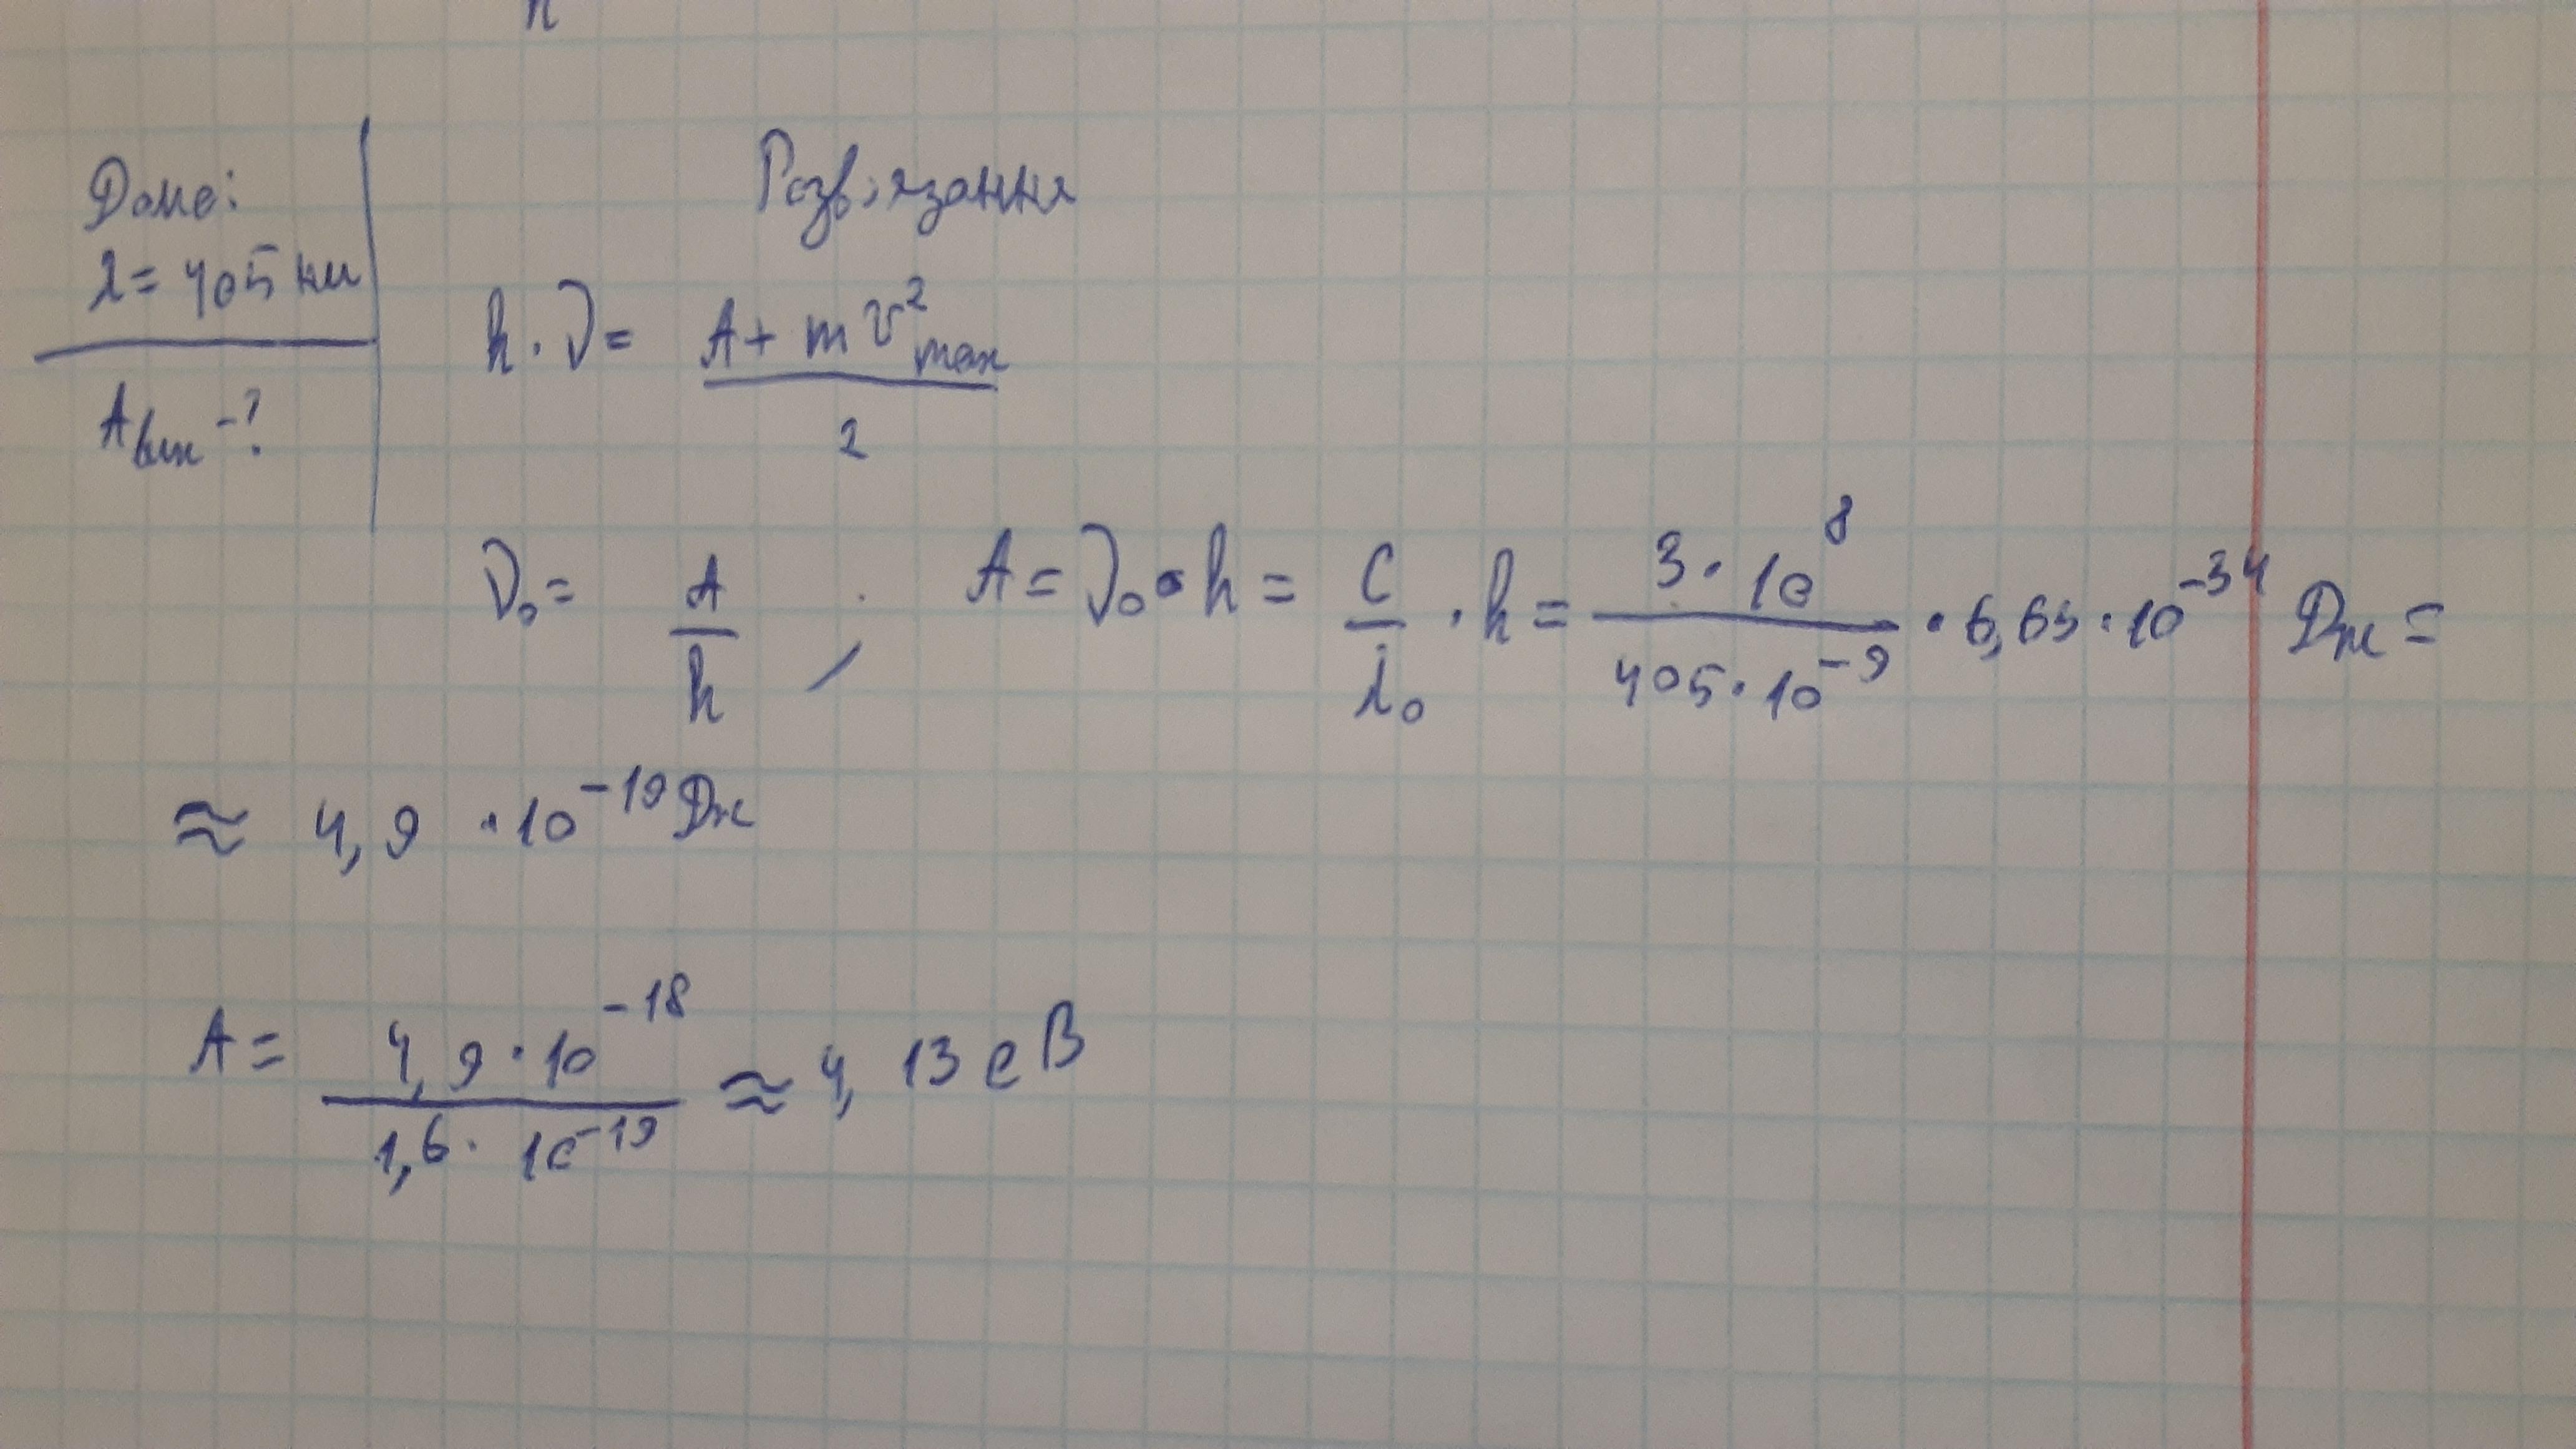 h
Дано:
λ = 405 нм
Aвих - ?
Розв'язання
h · ν = (A + m v²max) / 2
ν₀ = A / h , A = ν₀ · h = c / λ₀ · h = (3 · 10⁸) / (405 · 10⁻⁹) · 6,63 · 10⁻³⁴ Дж =
≈ 4,9 · 10⁻¹⁹ Дж
A = (4,9 · 10⁻¹⁸) / (1,6 · 10⁻¹⁹) ≈ 4,13 еВ